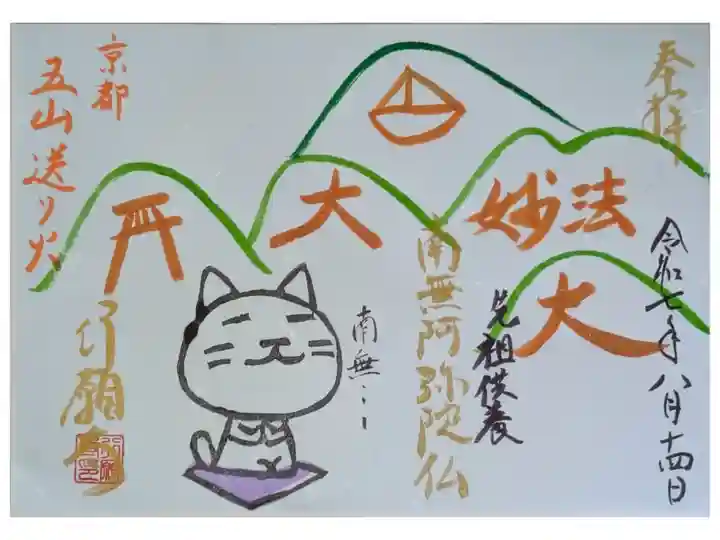 奉拝
令和七年八月十四日
妙法
大
大
南無阿弥陀仏
先祖供養
南無…
京都
五山送り火
行願寺